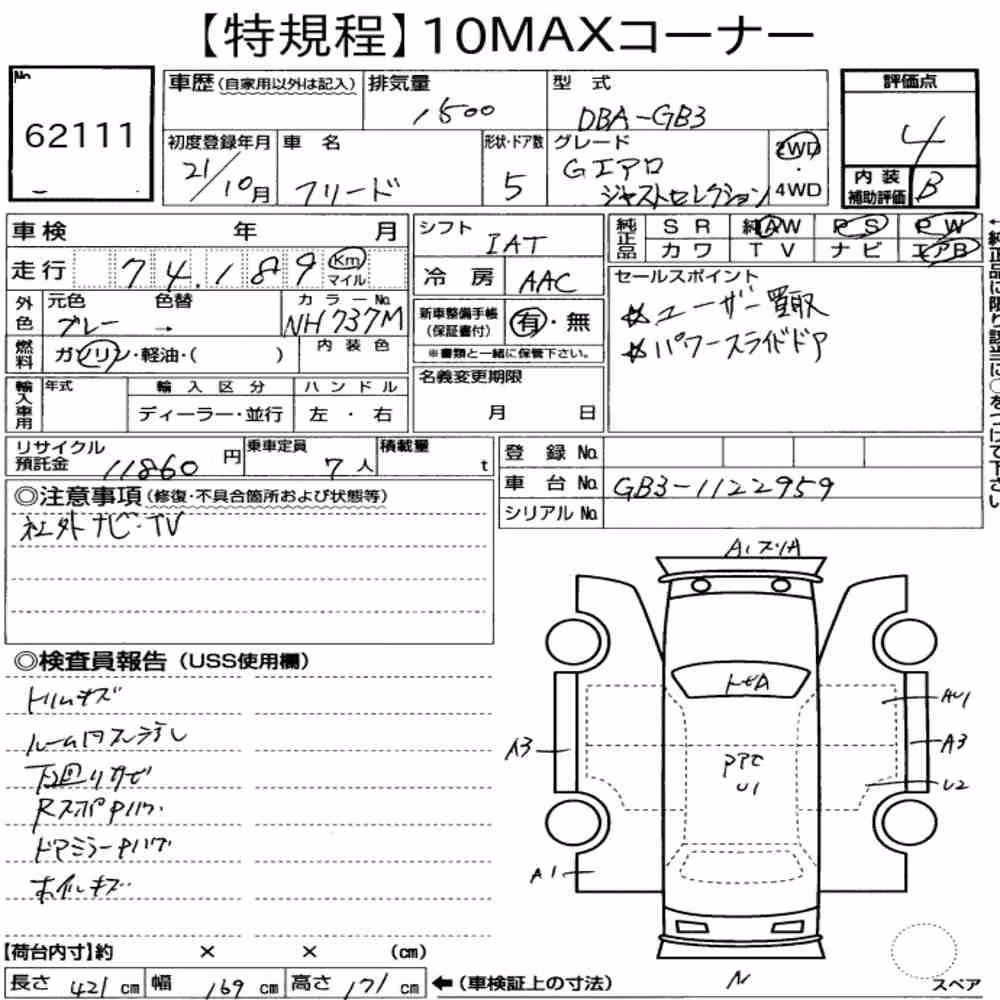 【特規程】10MAXコーナー
No.
62111
車歴(自家用以外は記入)
排気量
1500
型 式
DBA-GB3
評価点
4
初度登録年月
21/10月
車 名
フリード
形状・ドア数
5
グレード
Gエアロ
ジャストセレクション
2WD
・
4WD
内 装
補助評価
B
車検 年 月
走行 74,189 Km
マイル
外色
元色 色替
グレー →
カラーNo.
NH737M
燃料
ガソリン・軽油・( )
内 装 色
輸入車用
年式
輸 入 区 分
ハ ン ド ル
ディーラー・並行
左 ・ 右
シフト
IAT
冷 房 AAC
新車整備手帳
(保証書付)
有・無
※書類と一緒に保管下さい。
名義変更期限
月 日
純正品
S R 純AW P S P W
カワ T V ナビ エアB
セールスポイント
☆ユーザー買取
☆パワースライドドア
←純正品に限り該当に○をつけて下さい
リサイクル
預託金 11860 円
乗車定員
7人
積載量
t
登 録 No.
車 台 No. GB3-1122959
シリアル No.
◎注意事項(修復・不具合箇所および状態等)
社外ナビ・TV
◎検査員報告(USS使用欄)
トリムキズ
ルーム内スレ汚レ
下回りサビ
ドアミラー
ホイルキズ
A1
トビA
A3
A3
U1
U2
A1
【荷台内寸】約 × × (cm)
長さ 421 cm 幅 169 cm 高さ 171 cm ←(車検証上の寸法)
N
スペア